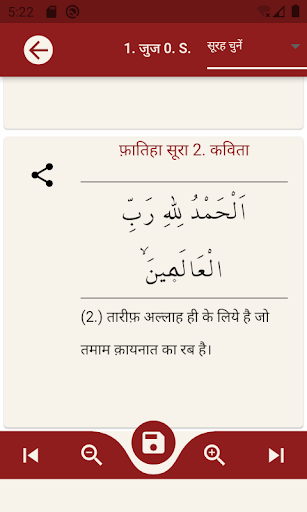 5:22
1. जुज 0. S. सूरह चुनें
फ़ातिहा सूरा 2. कविता
اَلْحَمْدُ لِلّٰهِ رَبِّ
الْعَالَم۪ينَۙ
(2.) तारीफ़ अल्लाह ही के लिये है जो
तमाम क़ायनात का रब है।